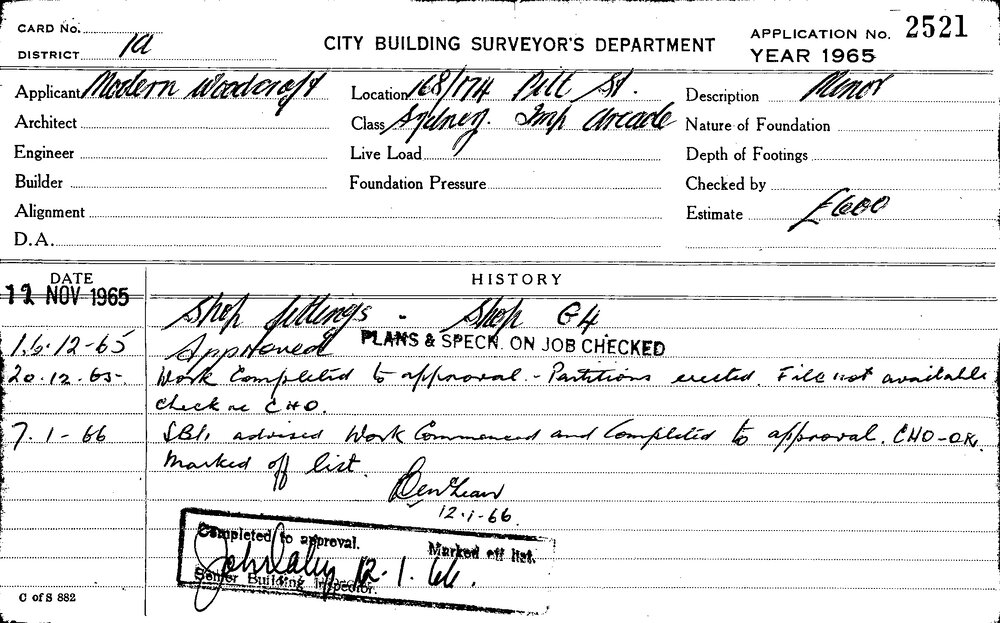 CARD No.
DISTRICT 1a
CITY BUILDING SURVEYOR'S DEPARTMENT
APPLICATION No. 2521
YEAR 1965
Applicant Modern Woodcraft
Location 168/174 Pitt St.
Description Minor
Architect
Class Sydney. Imp Arcade
Nature of Foundation
Engineer
Live Load
Depth of Footings
Builder
Foundation Pressure
Checked by
Alignment
Estimate £600
D.A.
DATE
HISTORY
12 NOV 1965
Shop fittings - Shop G4
16.12-65 Approved PLANS & SPECN. ON JOB CHECKED
20.12.65- Work Completed to approval. - Partitions erected. File not available
check re CHO.
7.1-66 SBI, advised Work Commenced and Completed to approval. CHO-OK.
Marked off list.
12.1-66.
Completed to approval. Marked off list.
12.1.66.
Senior Building Inspector.
C of S 882